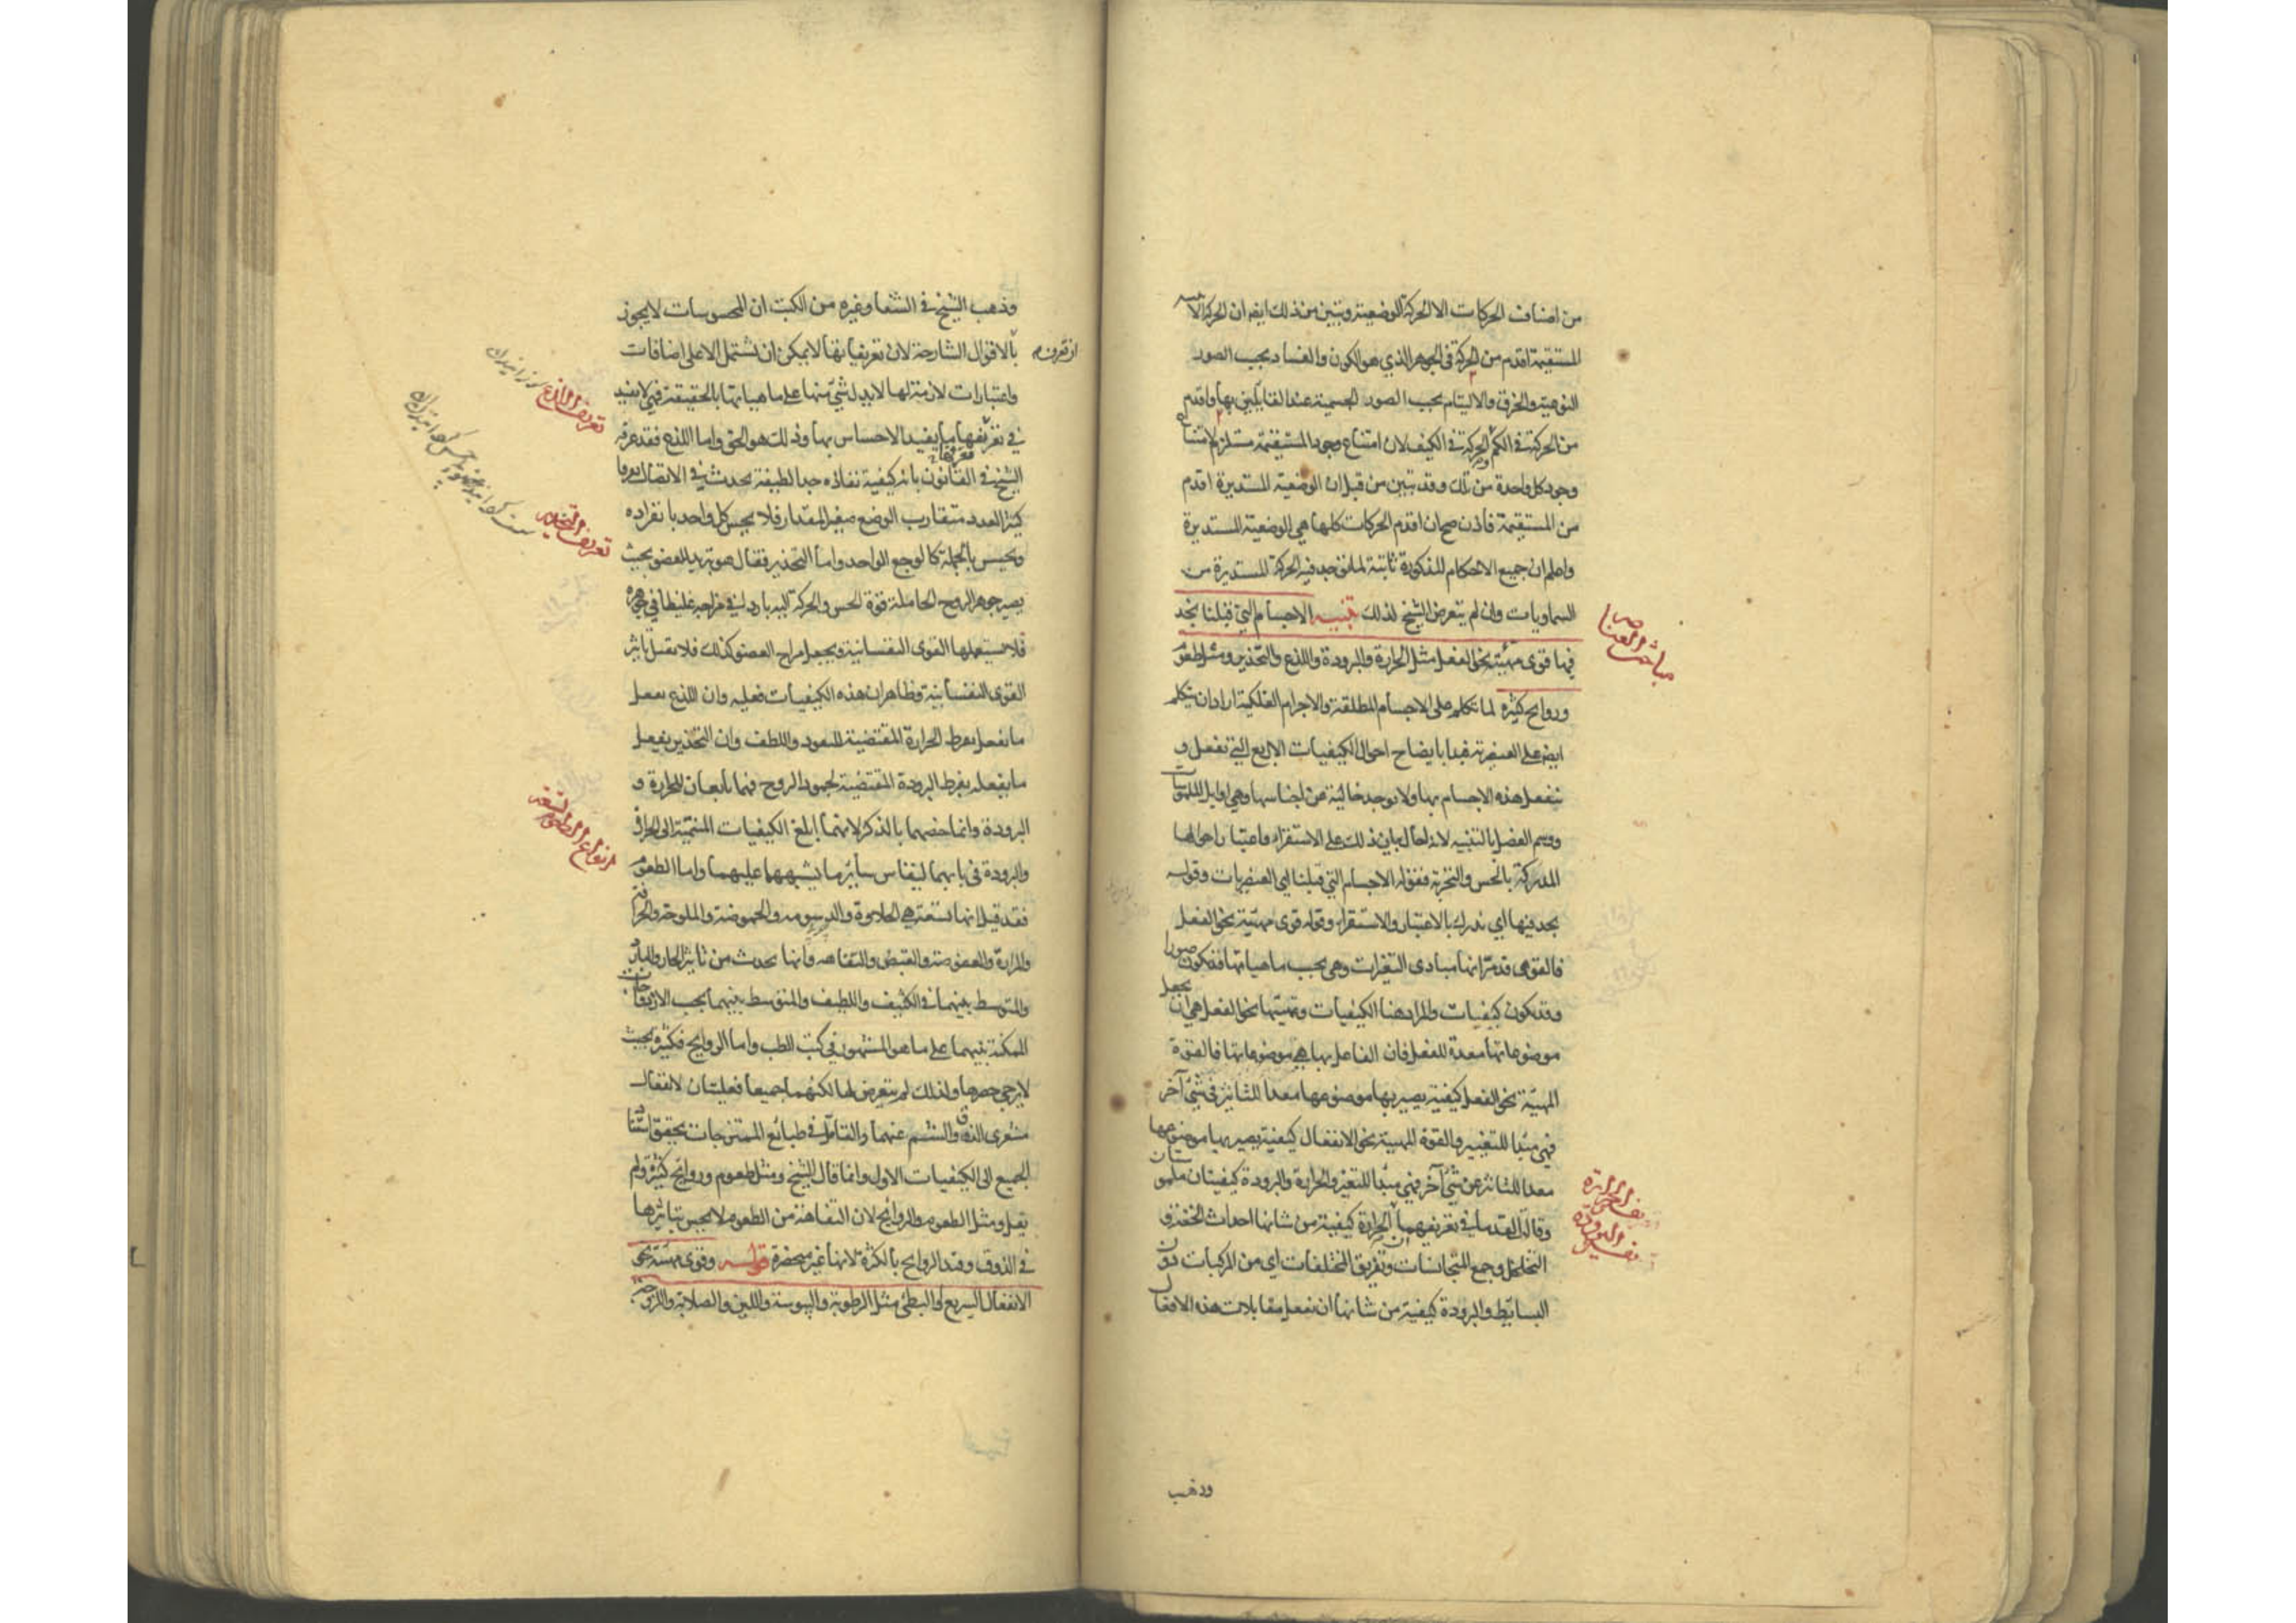 من اصناف الحركات الا الحركة الوضعية وتبين من ذلك ايضا ان الحركة الا
المستقيمة اقدم من الحركة في الجوهر الذي هو الكون والفساد بحسب الصور
النوعية والخرق والالتيام بحسب الصور الجسمية عند القايلين بها واقدم
من الحركة في الكم والحركة في الكيف لان امتناع وجود المستقيمة مستلزم لامتناع
وجود كل واحدة من تلك وقد تبين من قبل ان الوضعية المستديرة اقدم
من المستقيمة فاذن صح ان اقدم الحركات كلها هي الوضعية المستديرة
واعلم ان جميع الاحكام المذكورة ثابتة لما توجد فيه الحركة المستديرة من
السماويات وان لم يتعرض الشيخ لذلك تنبيه الاجسام التي قبلنا نجد
فيها قوى مهيئة نحو الفعل مثل الحرارة والبرودة واللذع والتخدير ومثل طعوم
وروايح كثيرة لما تكلم على الاجسام المطلقة والاجرام الفلكية اراد ان يتكلم
ايضا على العنصرية فبدا بايضاح احوال الكيفيات الاربع التي تفعل و
تنفعل هذه الاجسام بها ولا توجد خالية عن اجناسها وهي اوايل الملموسات
ووسم الفصل بالتنبيه لانه احال بيان ذلك على الاستقراء واعتبار احوالها
المدركة بالحس والتجربة فقوله الاجسام التي قبلنا اي العنصريات وقوله
نجد فيها اي ندرك بالاعتبار والاستقراء وقوله قوى مهيئة نحو الفعل
فالقوى قد مر انها مبادي التغيرات وهي بحسب ماهياتها قد تكون صورا
وقد تكون كيفيات والمراد هنا الكيفيات وتهيئتها نحو الفعل هي ان يجعل
موضوعاتها معدة للفعل فان الفاعل بها هي موضوعاتها فالقوة
المهيئة نحو الفعل كيفية يصير بها موضوعها معدا للتاثير في شيء آخر
فهي مبدا للتغيير والقوة المهيئة نحو الانفعال كيفية يصير بها موضوعها
معدا للتاثر عن شيء آخر فهي مبدا للتغير والحرارة والبرودة كيفيتان ملموستان
وقال القدماء في تعريفهما ان الحرارة كيفية من شانها احداث الخفة و
التخلخل وجمع المتجانسات وتفريق المختلفات اي من المركبات دون
البسايط والبرودة كيفية من شانها ان تفعل مقابلات هذه الافعال
وذهب
مباحث العناصر
تفسير الحرارة
تفسير البرودة
وذهب الشيخ في الشفا وغيره من الكتب ان المحسوسات لا يجوز
ان تعرف
بالاقوال الشارحة لان تعريفاتها لا يمكن ان تشتمل الا على اضافات
واعتبارات لازمة لها لا يدل شيء منها على ماهياتها بالحقيقة فهي لا تفيد
في تعريفها ما يفيد الاحساس بها وذلك هو الحق واما اللذع فقد عرفه
الشيخ في القانون بانه كيفية نفاذة جدا لطيفة تحدث في الاتصال تفرقا
كثير العدد متقارب الوضع صغير المقدار فلا يحس كل واحد بانفراده
ويحس بالجملة كالوجع الواحد واما التخدير فقال هو تبريد للعضو بحيث
يصير جوهر الروح الحاملة قوة الحس والحركة اليه باردا في مزاجه غليظا في جوهره
فلا تستعملها القوى النفسانية ويجعل مزاج العضو كذلك فلا يقبل تاثير
القوى النفسانية وظاهر ان هذه الكيفيات فعليه وان اللذع يفعل
ما يفعل بفرط الحرارة المقتضية للنفوذ واللطف وان التخدير يفعل
ما يفعله بفرط البرودة المقتضية لجمود الروح فهما تابعان للحرارة و
البرودة وانما خصهما بالذكر لانهما ابلغ الكيفيات المنتمية الى الحرارة
والبرودة في بابهما ليقاس ساير ما يشبههما عليهما واما الطعوم
فقد قيل انها تسعة هي الحلاوة والدسومه والحموضة والملوحة والحرافة
والمرارة والعفوصة والقبض والتفاهه وانها تحدث من تاثير الحار والبارد
والمتوسط بينهما في الكثيف واللطيف والمتوسط بينهما بحسب الازدواجات
الممكنة بينهما على ما هو المشهور في كتب الطب واما الروايح فكثيرة بحيث
لا يرجى حصرها ولذلك لم يتعرض لها لكنهما جميعا فعليتان لانفعال
مشعري الذوق والشم عنهما والتامل في طبائع الممتزجات يحقق استناد
الجميع الى الكيفيات الاول وانما قال الشيخ ومثل طعوم وروايح كثيرة ولم
يقل ومثل الطعوم والروايح لان التفاهة من الطعوم لا يحس بتاثيرها
في الذوق وقيد الروايح بالكثرة لانها غير منحصرة قوله وقوى مهيئة نحو
الانفعال السريع او البطئ مثل الرطوبة واليبوسة واللين والصلابة واللزوجة
تعريف اللذع
تعريف التخدير
انواع الطعوم التسعة